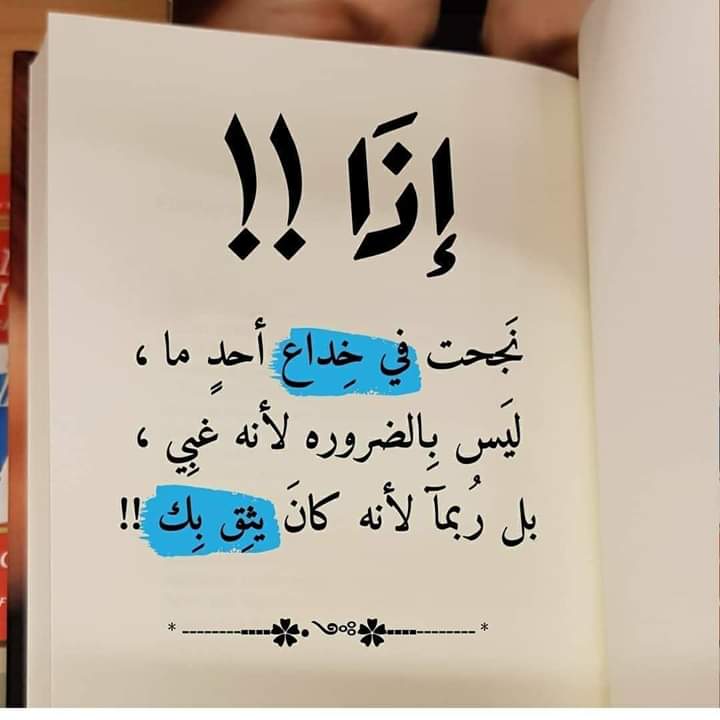 إذَا !!
نَجحت في خِداع أحدٍ ما ،
ليَس بِالضروره لأنه غبِي ،
بل رُبمآ لأنه كانَ يثِق بِك !!